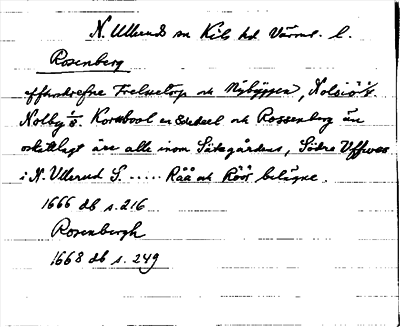 N. Ullerud sn Kils hd Värml. l.
Rosenberg
offterskrefne Trelsetorp och Nybyggen, Nolsiö
Nolby 1/8. Kornbool en och Rossenberg än
oskattlagt äre alle inom Sätegårdens, Södre
i N. Ullerud S. ..... Råå och Röör belägne.
1666 db s. 216
Rosenbergh
1668 db s. 249